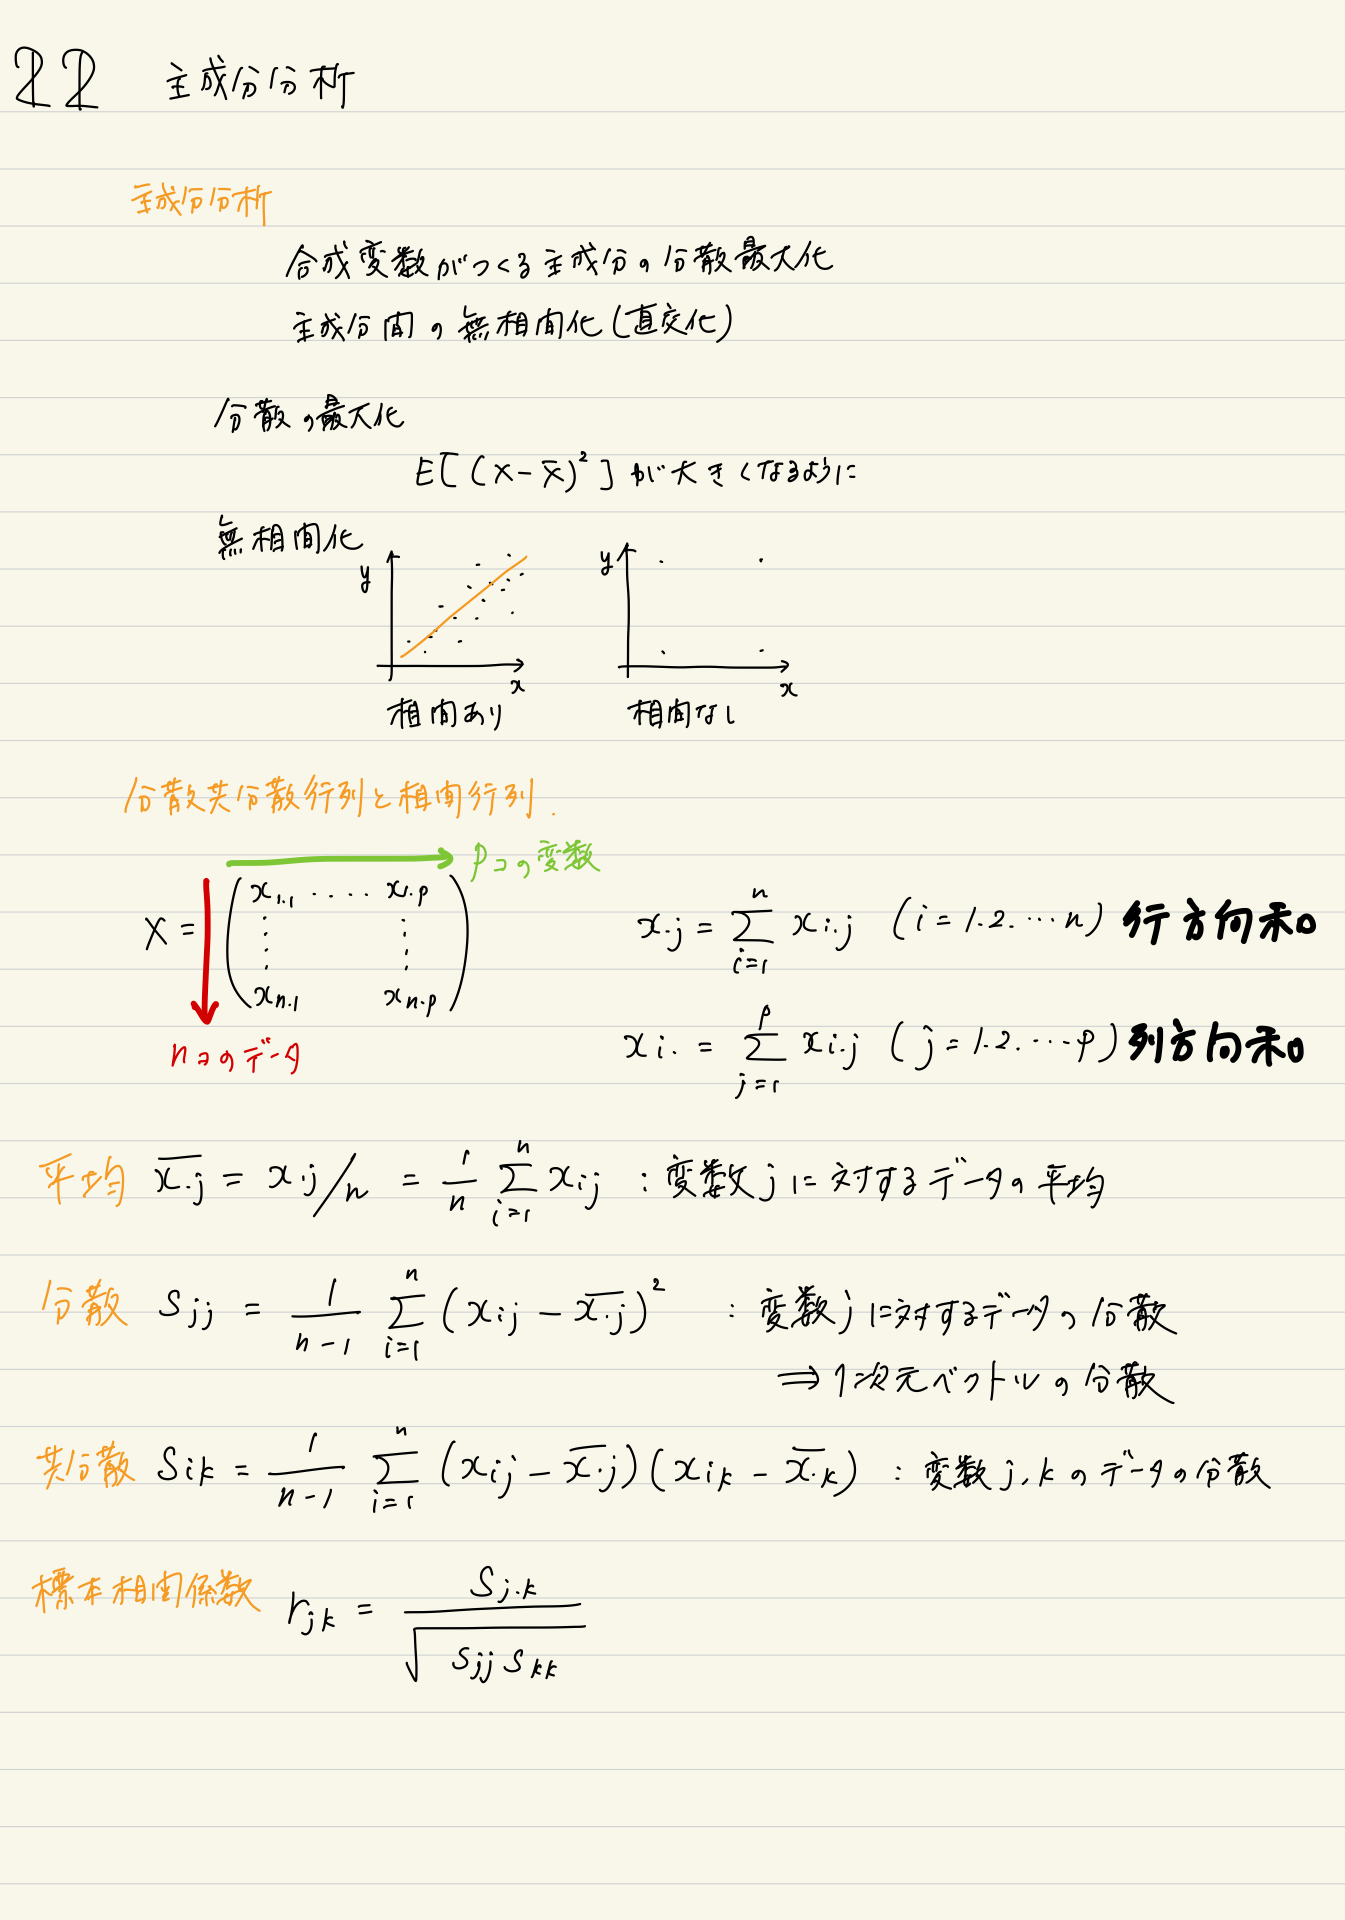 22 主成分分析
主成分分析
合成変数がつくる主成分の分散最大化
主成分間の無相関化(直交化)
分散の最大化
E[(x-x̄)²]が大きくなるように
無相関化
y
x
相関あり
y
x
相関なし
分散共分散行列と相関行列.
pコの変数
X = ( x₁.₁ ‥‥ x₁.p
⋮ ⋮
xn.1 xn.p )
nコのデータ
x.j = Σ_{i=1}^{n} xi.j (i=1.2.…n) 行方向和。
xi. = Σ_{j=1}^{p} xi.j (j=1.2.…p) 列方向和。
平均 \overline{x.j} = x.j/n = 1/n Σ_{i=1}^{n} xij : 変数jに対するデータの平均
分散 Sjj = 1/(n-1) Σ_{i=1}^{n} (xij - \overline{x.j})² : 変数jに対するデータの分散
⇒ 1次元ベクトルの分散
共分散 Sik = 1/(n-1) Σ_{i=1}^{n} (xij - \overline{x.j})(xik - \overline{x.k}) : 変数j,kのデータの分散
標本相関係数 rjk = Sj.k / √(Sjj Skk)